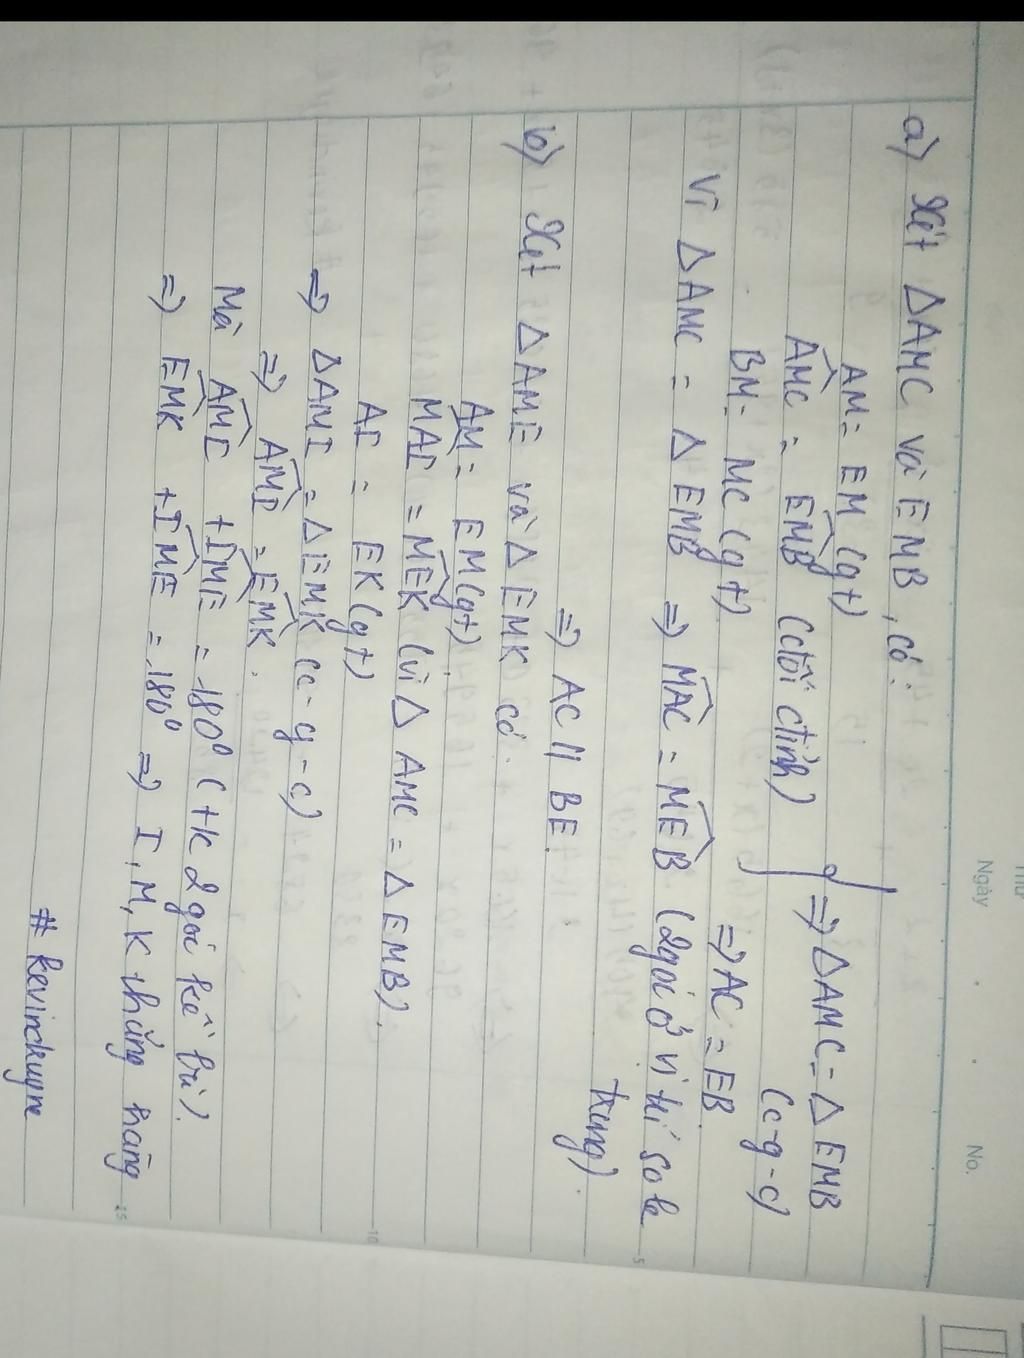 Thứ
Ngày
No.
a) Xét △AMC và EMB, có:
AM = EM (gt)
AMC = EMB (đối đỉnh)
BM = MC (gt)
⇒ △AMC = △EMB
(c-g-c)
⇒ AC = EB.
Vì △AMC = △EMB ⇒ MAC = MEB (2 góc ở vị trí so le
trong).
⇒ AC // BE.
b) Xét △AME và △EMK có:
AM = EM (gt).
MAI = MEK (vì △AMC = △EMB).
AI = EK (gt)
⇒ △AMI = △EMK (c-g-c)
⇒ AMI = EMK.
Mà AMI + IME = 180° (tc 2 góc kề bù).
⇒ EMK + IME = 180° ⇒ I, M, K thẳng hàng
# kevinduyne
5
10
15